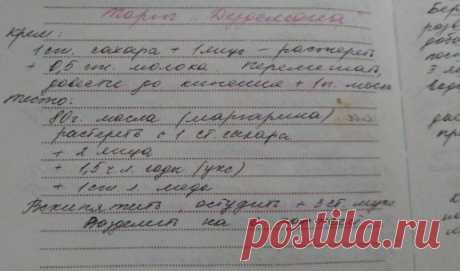 Торт „Дудемона"
Крем:
1 ст. сахара + 1 яйцо – растереть
+ 0,5 ст. молока перемешать,
довести до кипения + 1 п. масл
Тесто:
80 г. масла (маргарина)
растереть с 1 ст. сахара
+ 2 яйца
+ 1,5 ч л. соды (укс)
+ 1 ст л. меда
Вскипятить остудить + 3 ст. муки
Разделить на
postila.ru